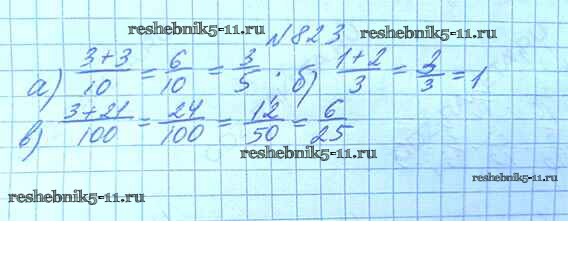 reshebnik5-11.ru
№823
а) (3+3)/10 = 6/10 = 3/5. б) (1+2)/3 = 3/3 = 1
reshebnik5-11.ru
в) (3+21)/100 = 24/100 = 12/50 = 6/25
reshebnik5-11.ru
reshebnik5-11.ru
reshebnik5-11.ru